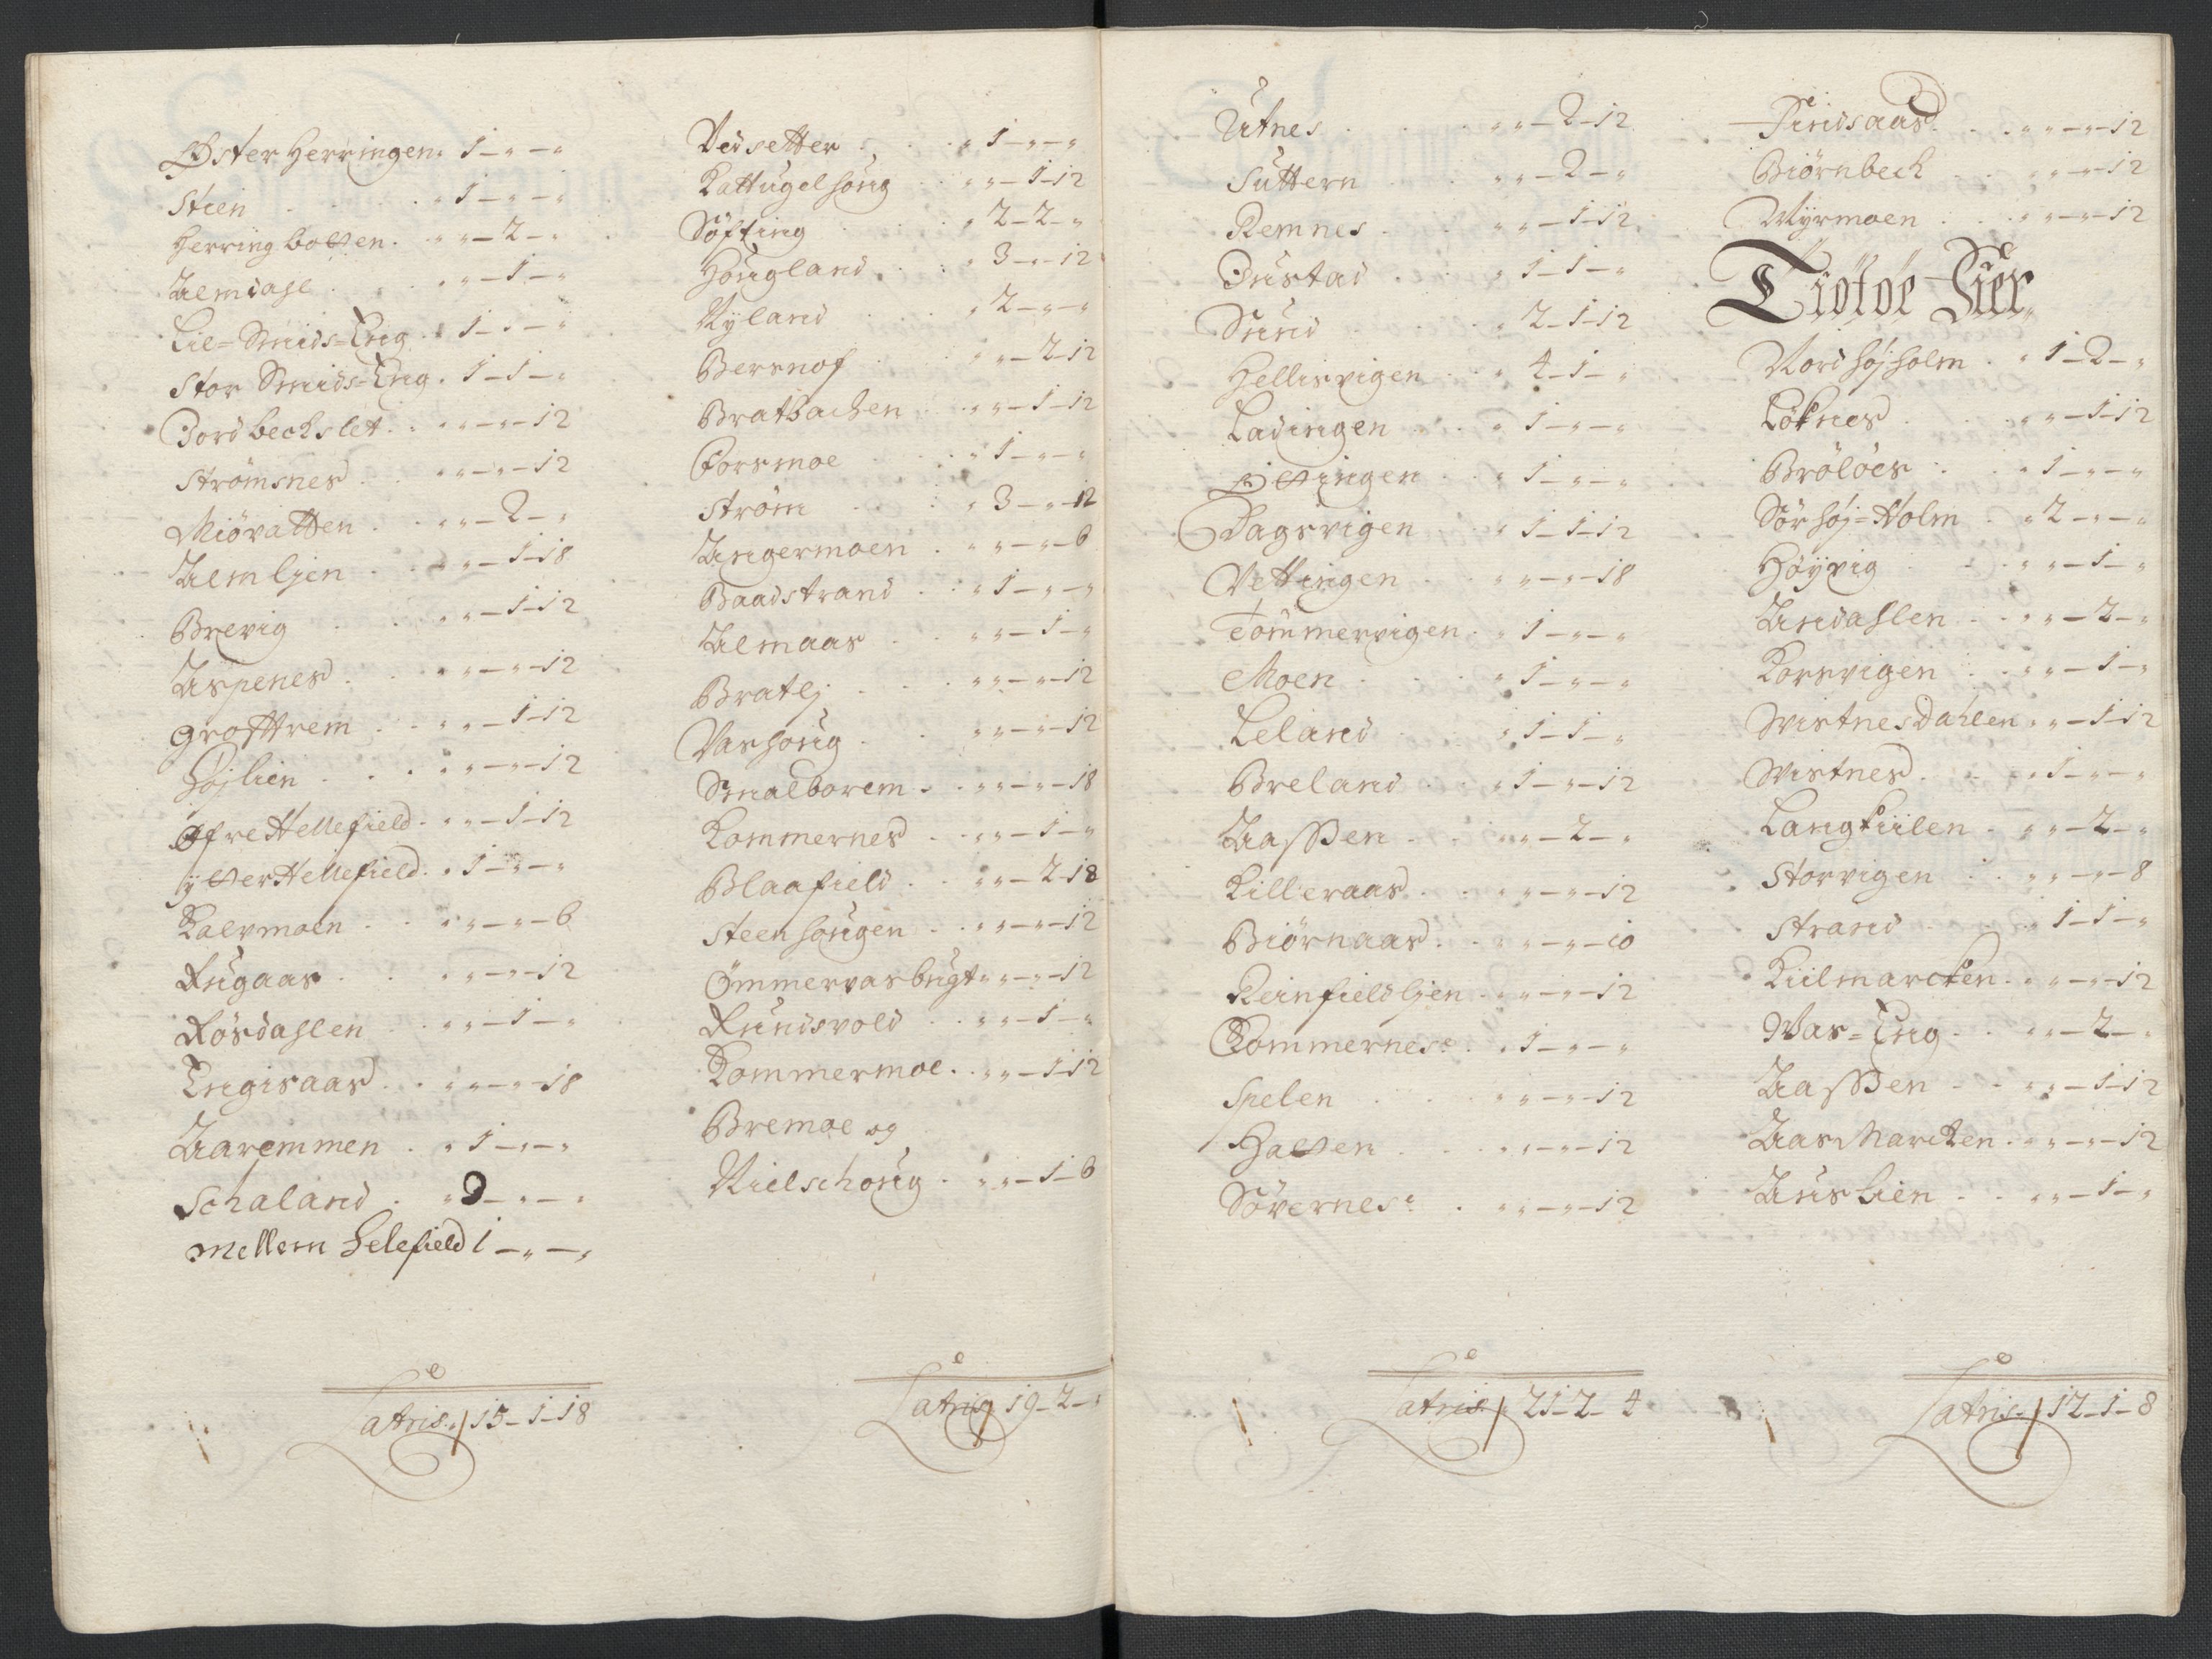 Øster Herringen. 1 – „ – „
Stien . . . . „ 1 – „ – „
Herring botten . „ „ – 2 – „
Almdahl . . . „ „ – 1 – „
Lil=Smids=Eng . „ 1 – „ – „
Stor Smids=Eng . 1 – 1 – „
Jordbechslet . . „ „ – „ – 12
Strømsnes . . „ „ – „ – 12
Miøvatten . . „ „ – 2 – „
Almljen . . „ „ – 1 – 18
Brevig . . „ „ – 1 – 12
Aspenes . . „ „ – „ – 12
Grofttrem . . „ „ – 1 – 12
Højlien . . . „ „ – „ – 12
Øfre Hellefield . „ „ – 1 – 12
ytter Hellefield . „ 1 – „ – „
Kalvmoen . . „ „ – „ – 6
Rugaas . . „ „ – „ – 12
Røsdahlen . . „ „ – 1 – „
Engisaas . . „ „ – „ – 18
Aaremmen . „ 1 – „ – „
Schaland . „ 2 – „ – „
Mellem Helefield 1 – „ – „
Lateris „ 15 – 1 – 18
Vedsetter . . . „ 1 – „ – „
Kattugelhoug . . „ „ – 1 – 12
Søfting . . . „ 2 – 2 – „
Hougland . . „ 3 – „ – 12
Nyland . . . „ 2 – „ – „
Bersnof . . . „ „ – 2 – 12
Bratbachen . . „ „ – 1 – 12
Forsmoe . . . „ 1 – „ – „
Strøm . . . „ 3 – „ – 12
Ungermoen . „ „ – „ – 6
Baadstrand . . „ 1 – „ – „
Almaas . . „ „ – 1 – „
Bratlj . . . „ „ – „ – 12
Varhoug . . „ „ – „ – 12
Smalborem . . „ „ – „ – 18
Kommernes . . „ „ – 1 – „
Blaafield . . „ „ – 2 – 18
Steenhougen . . „ „ – „ – 12
Ømmervasbugt „ „ – „ – 12
Rundsvold . . „ „ – 1 – „
Kommermoe . . „ „ – 1 12
Bremoe og
Nielschoug . „ „ – 1 – 6
Lateris 19 – 2 – „
Utnes . . . „ „ – 2 – 12
Suttern . . . „ „ – 2 – „
Remnes . . . „ „ – 1 – 12
Bustad . . . „ 1 – 1 – „
Sund . . . „ 2 – 1 – 12
Hellisvigen . . „ 4 – 1 – „
Ladingen . . . „ 1 – „ – „
Øttingen . . „ 1 – „ – „
Dagsvigen . . „ 1 – 1 – 12
Vettingen . . „ „ – „ – 18
Tømmervigen . „ 1 – „ – „
Moen . . . „ 1 – „ – „
Leland . . „ 1 – 1 – „
Breland . . „ 1 – „ – 12
Aassen . . . „ „ – 2 – „
Killeraas . . „ „ – „ – 12
Biørnaas . . „ „ – „ – 10
Reinfieldljen . „ „ – „ – 12
Kommernes . „ 1 – „ – „
Spelen . . . „ „ – „ – 12
Hatten . . . „ „ – „ – 12
Søvernes . „ „ – „ – 12
Lateris „ 21 – 2 – 4
Findsaas . . . „ „ – „ – 12
Biørnbech . . „ „ – „ – 12
Myrmoen . . „ „ – „ – 12
Tiøtøe Fier.
Nordhøjholm . „ 1 – 2 – „
Løknes . . . „ „ – 1 – 12
Brøløes . . „ 1 – „ – „
Sørhøj=Holm . „ 2 – „ – „
Høyvig . . „ „ – 1 – „
Andahlen . . „ „ – 2 – „
Korsvigen . . „ „ – 1 – „
Wistnesdahlen . „ „ – 1 – 12
Wistnes . . „ 1 – „ – „
Langkiilen . „ „ – 2 – „
Storvigen . . „ „ – „ – 8
Strand . . . „ 1 – 1 – „
Kiilmarcken . „ „ – „ – 12
Was=Eng . . „ „ – 2 – „
Aassen . . „ „ – 1 – 12
Aasmarcken . „ „ – „ – 12
Auslien . . „ „ – 1 – „
Lateris „ 12 – 1 – 8